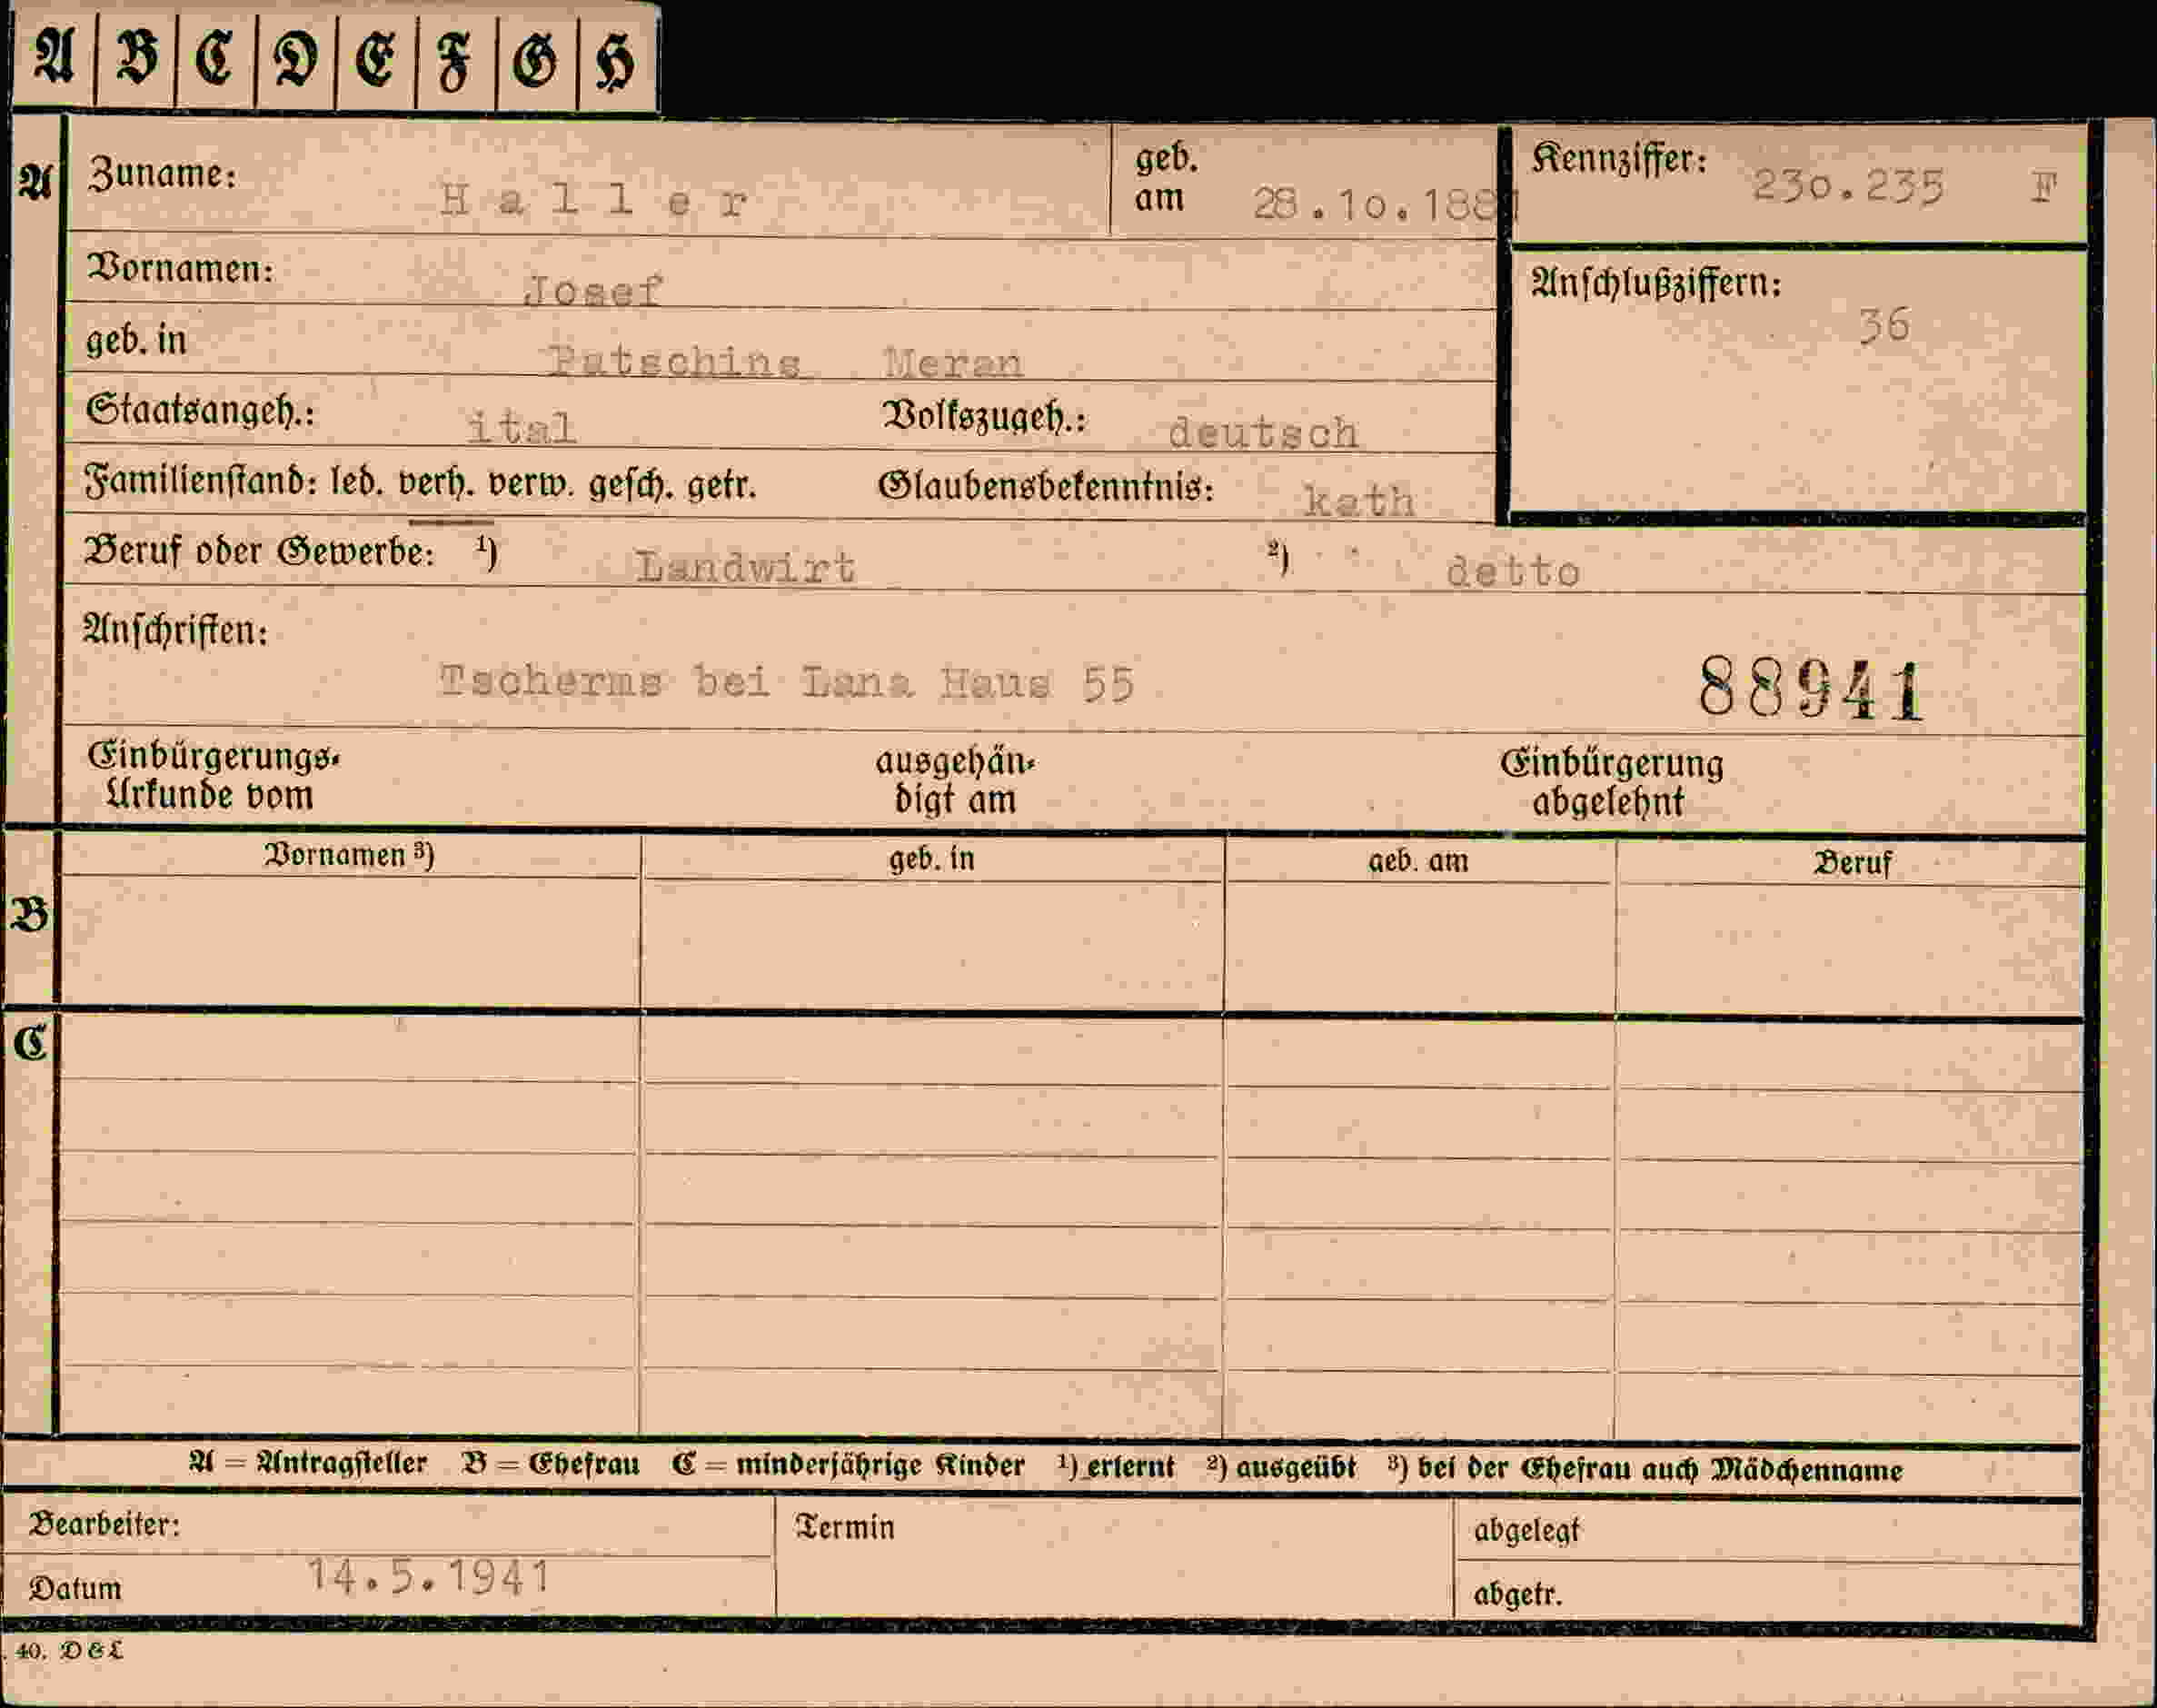 A B C D E F G H
A Zuname: Haller geb. am 28.10.1881 Kennziffer: 230.235 F
Vornamen: Josef Anschlußziffern: 36
geb. in Patsching Meran
Staatsangeh.: ital Volkszugeh.: deutsch
Familienstand: led. verh. verw. gesch. getr. Glaubensbekenntnis: kath
Beruf oder Gewerbe: ¹) Landwirt ²) detto
Anschriften:
Tscherms bei Lana Haus 55 88941
Einbürgerungs- ausgehän- Einbürgerung
Urkunde vom digt am abgelehnt
Vornamen ³) geb. in geb. am Beruf
B
C
A = Antragsteller B = Ehefrau C = minderjährige Kinder ¹) erlernt ²) ausgeübt ³) bei der Ehefrau auch Mädchenname
Bearbeiter: Termin abgelegt
Datum 14.5.1941 abgetr.
40. D&L